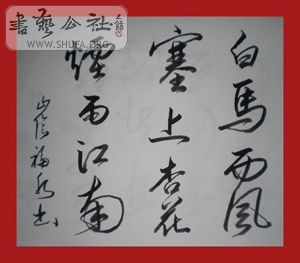 白馬西風
塞上杏花
煙雨江南
書藝公社
WWW.SHUFA.ORG